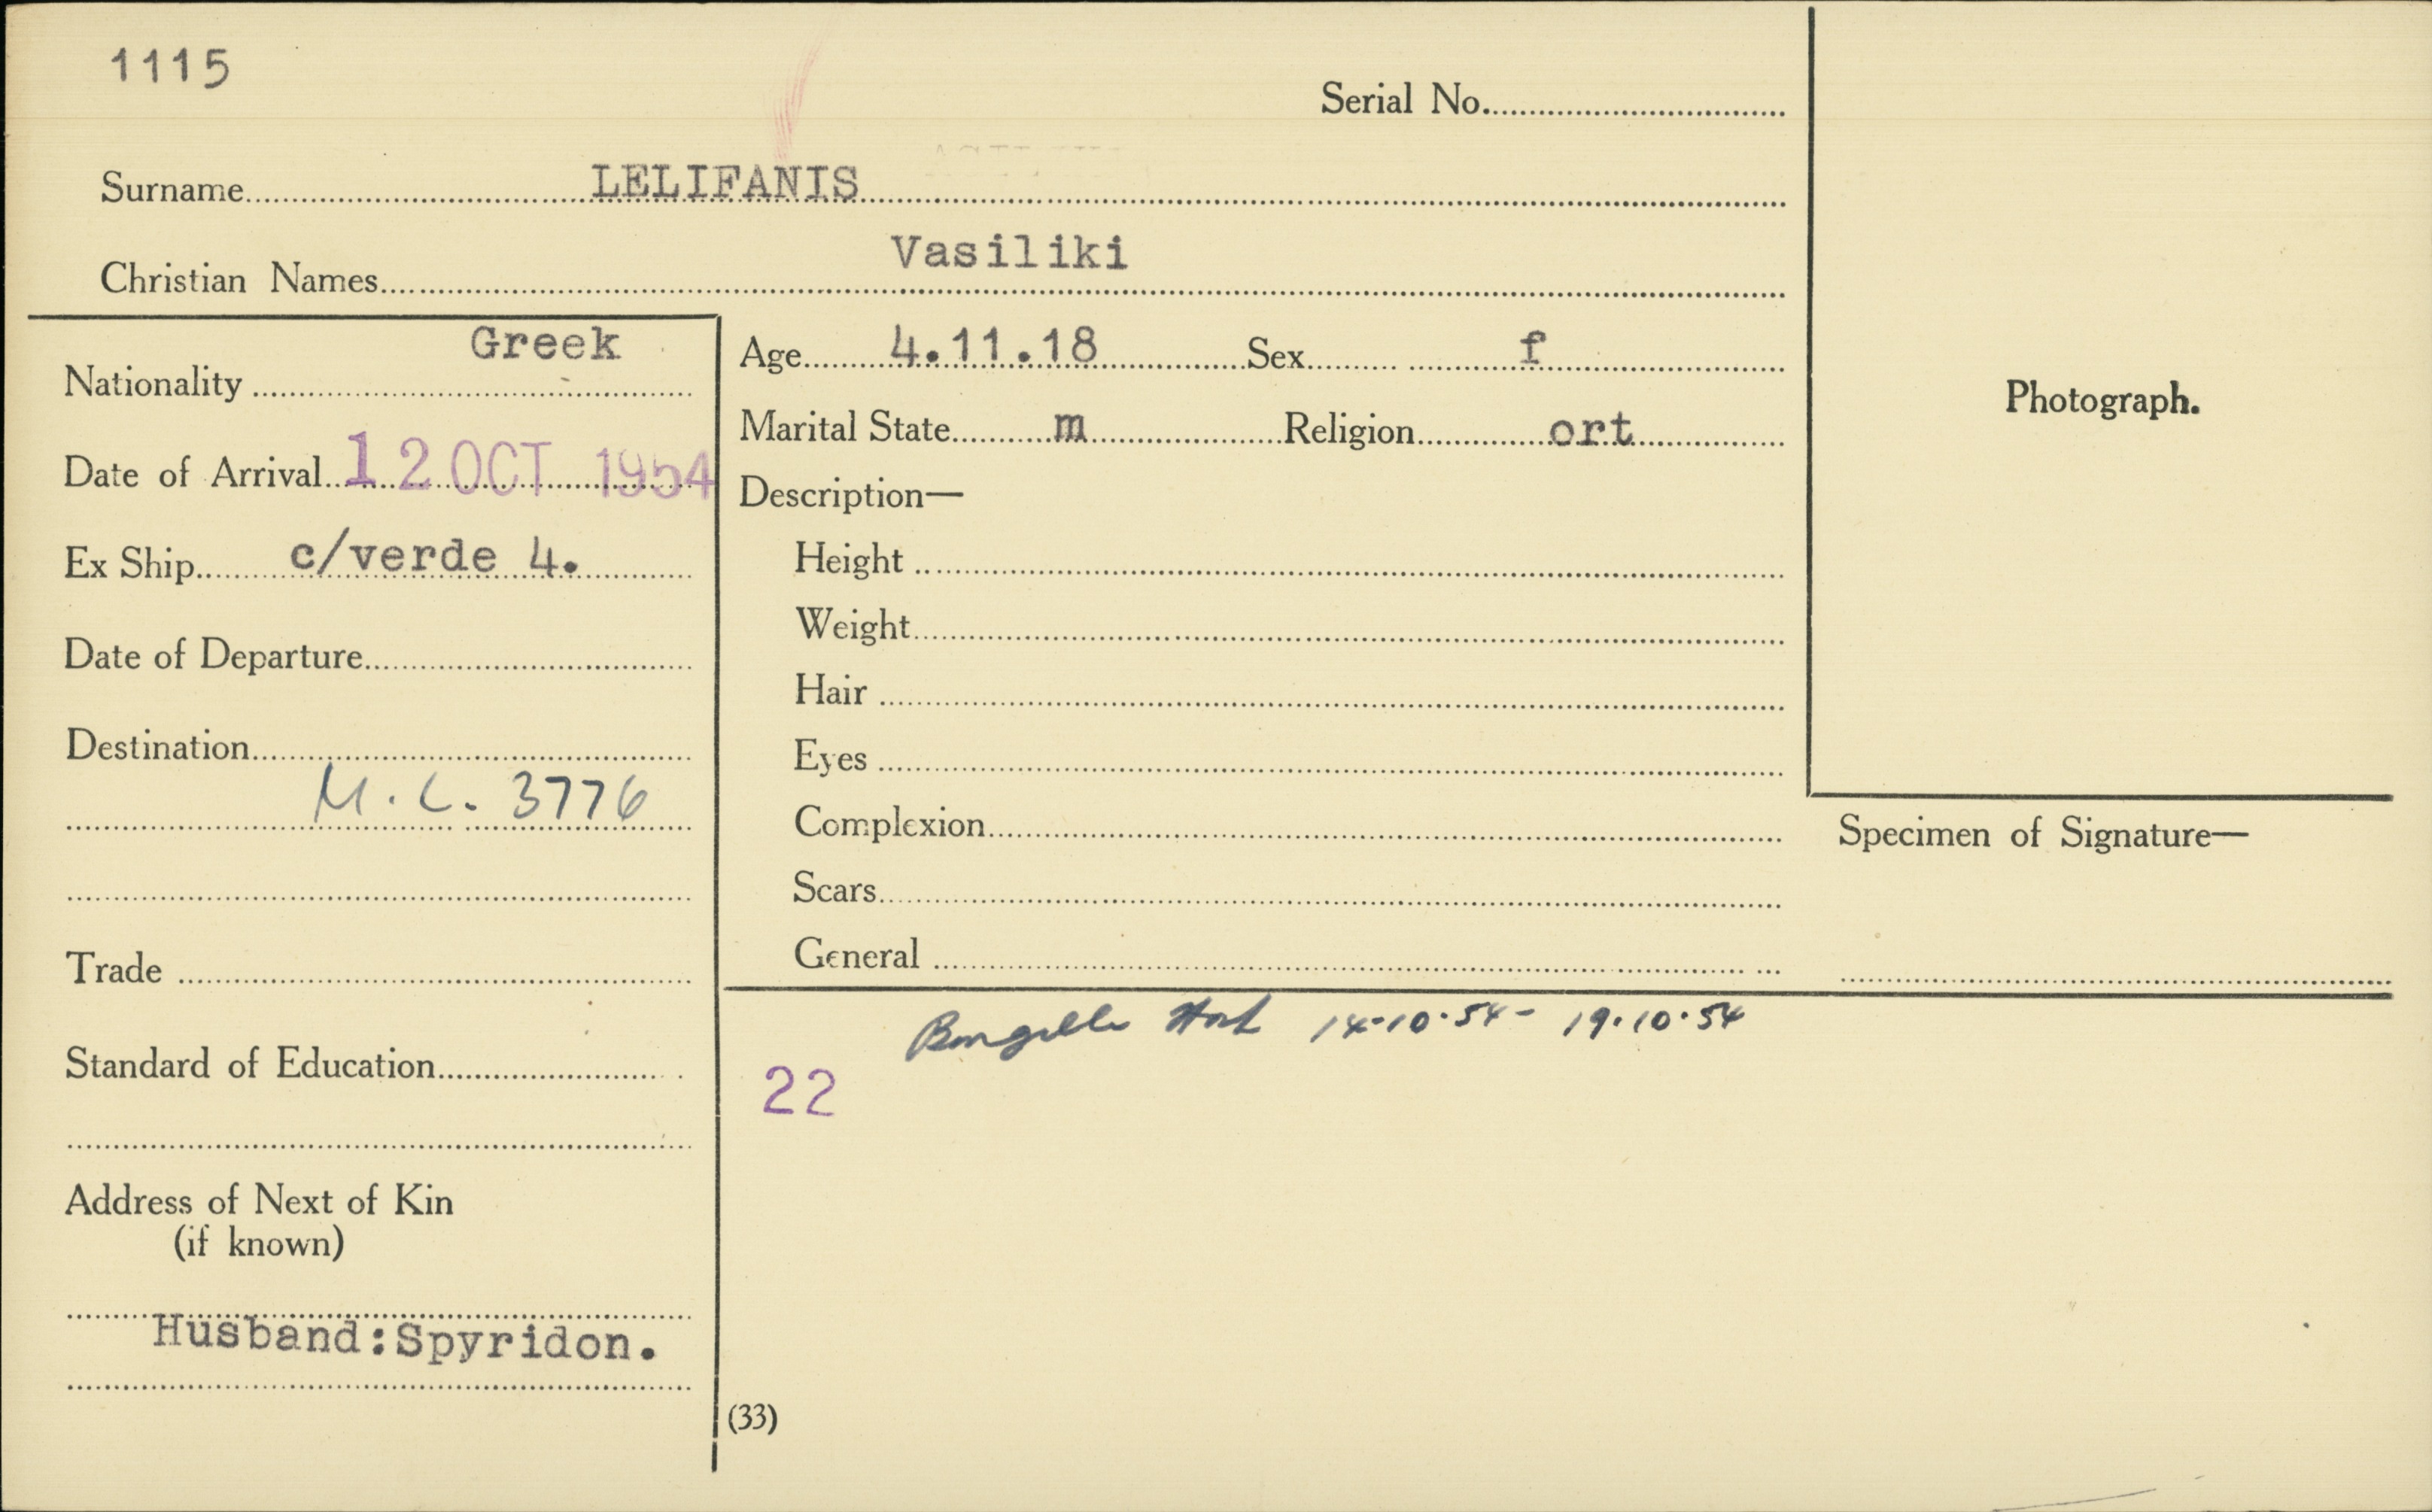 1115
Serial No.
Surname LELIFANIS
Christian Names Vasiliki
Nationality Greek
Date of Arrival 12 OCT 1954
Ex Ship c/verde 4.
Date of Departure
Destination
M.C. 3776
Trade
Standard of Education
Address of Next of Kin
(if known)
Husband:Spyridon.
Age 4.11.18 Sex f
Marital State m Religion ort
Description—
Height
Weight
Hair
Eyes
Complexion
Scars
General
Photograph.
Specimen of Signature—
14-10-54 - 19.10.54
22
(33)